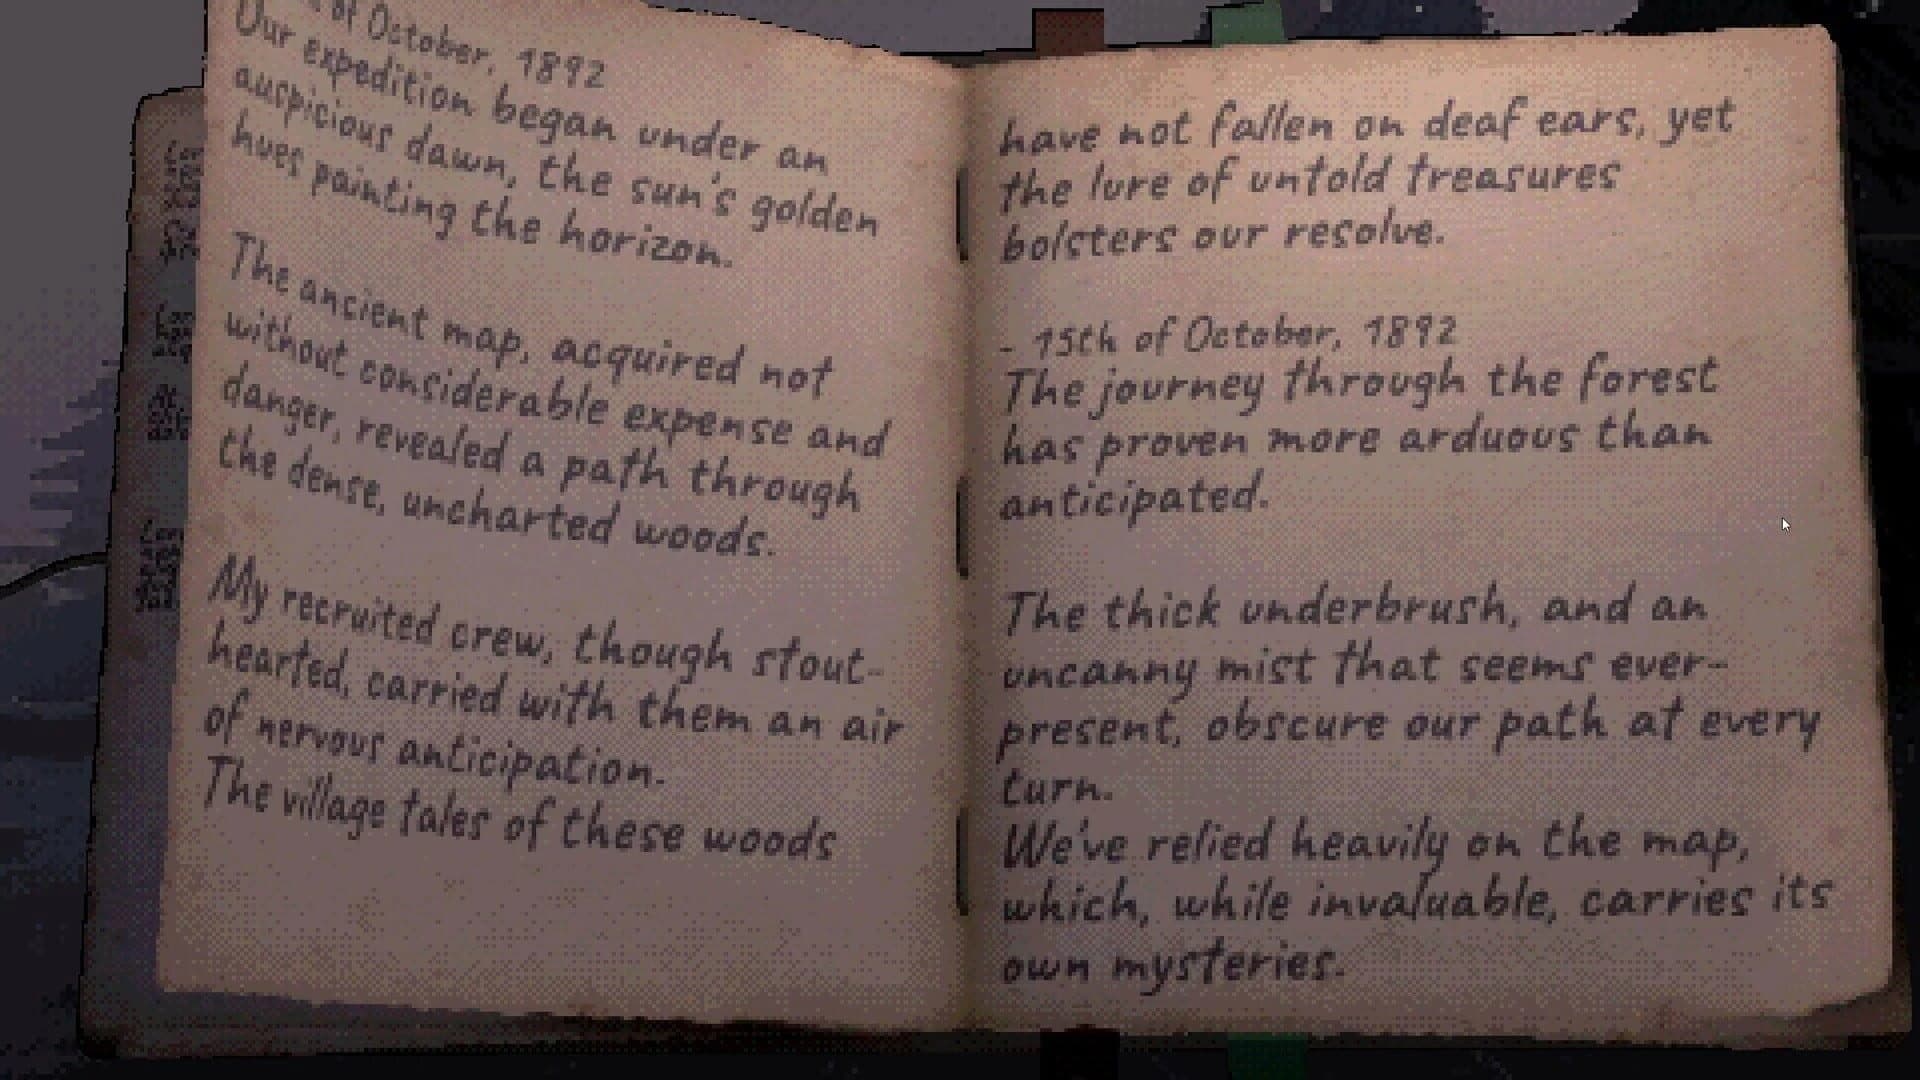 of October, 1892
Our expedition began under an
auspicious dawn, the sun's golden
hues painting the horizon.
The ancient map, acquired not
without considerable expense and
danger, revealed a path through
the dense, uncharted woods.
My recruited crew, though stout-
hearted, carried with them an air
of nervous anticipation.
The village tales of these woods
have not fallen on deaf ears, yet
the lure of untold treasures
bolsters our resolve.
- 15th of October, 1892
The journey through the forest
has proven more arduous than
anticipated.
The thick underbrush, and an
uncanny mist that seems ever-
present, obscure our path at every
turn.
We've relied heavily on the map,
which, while invaluable, carries its
own mysteries.